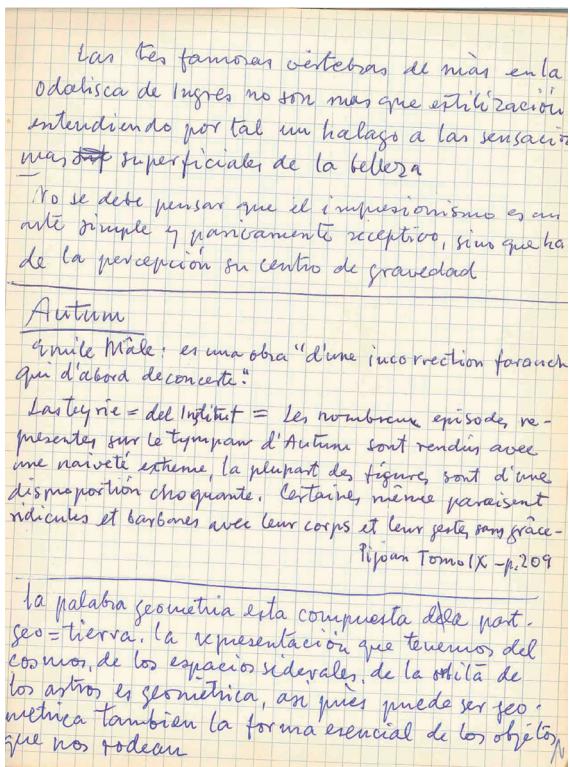 Las tes famosas vértebras de más en la
odalisca de Ingres no son mas que estilización
entendiendo por tal un halago a las sensacio
mas superficiales de la belleza
No se debe pensar que el impresionismo es un
arte simple y pasivamente receptivo, sino que ha
de la percepción su centro de gravedad
Autum
Emile Mâle: es una obra "d'une incorrection farouch
qui d'abord deconcerte".
Lasteyrie = del Institut = Les nombreux episodes re-
presentes sur le tympam d'Autum sont rendus avec
une naiveté extreme, la plupart des figures sont d'une
disproportión choquante. Certaines même paraisent
ridicules et barbares avec leur corps et leur gestes sans grâce-
Pijoan Tomo IX - p. 209
la palabra geometria esta compuesta de la part.
geo = tierra. la representación que tenemos del
cosmos, de los espacios siderales, de la orbita de
los astros es geométrica, asi pués puede ser geo-
metrica tambien la forma esencial de los objétos
que nos rodean